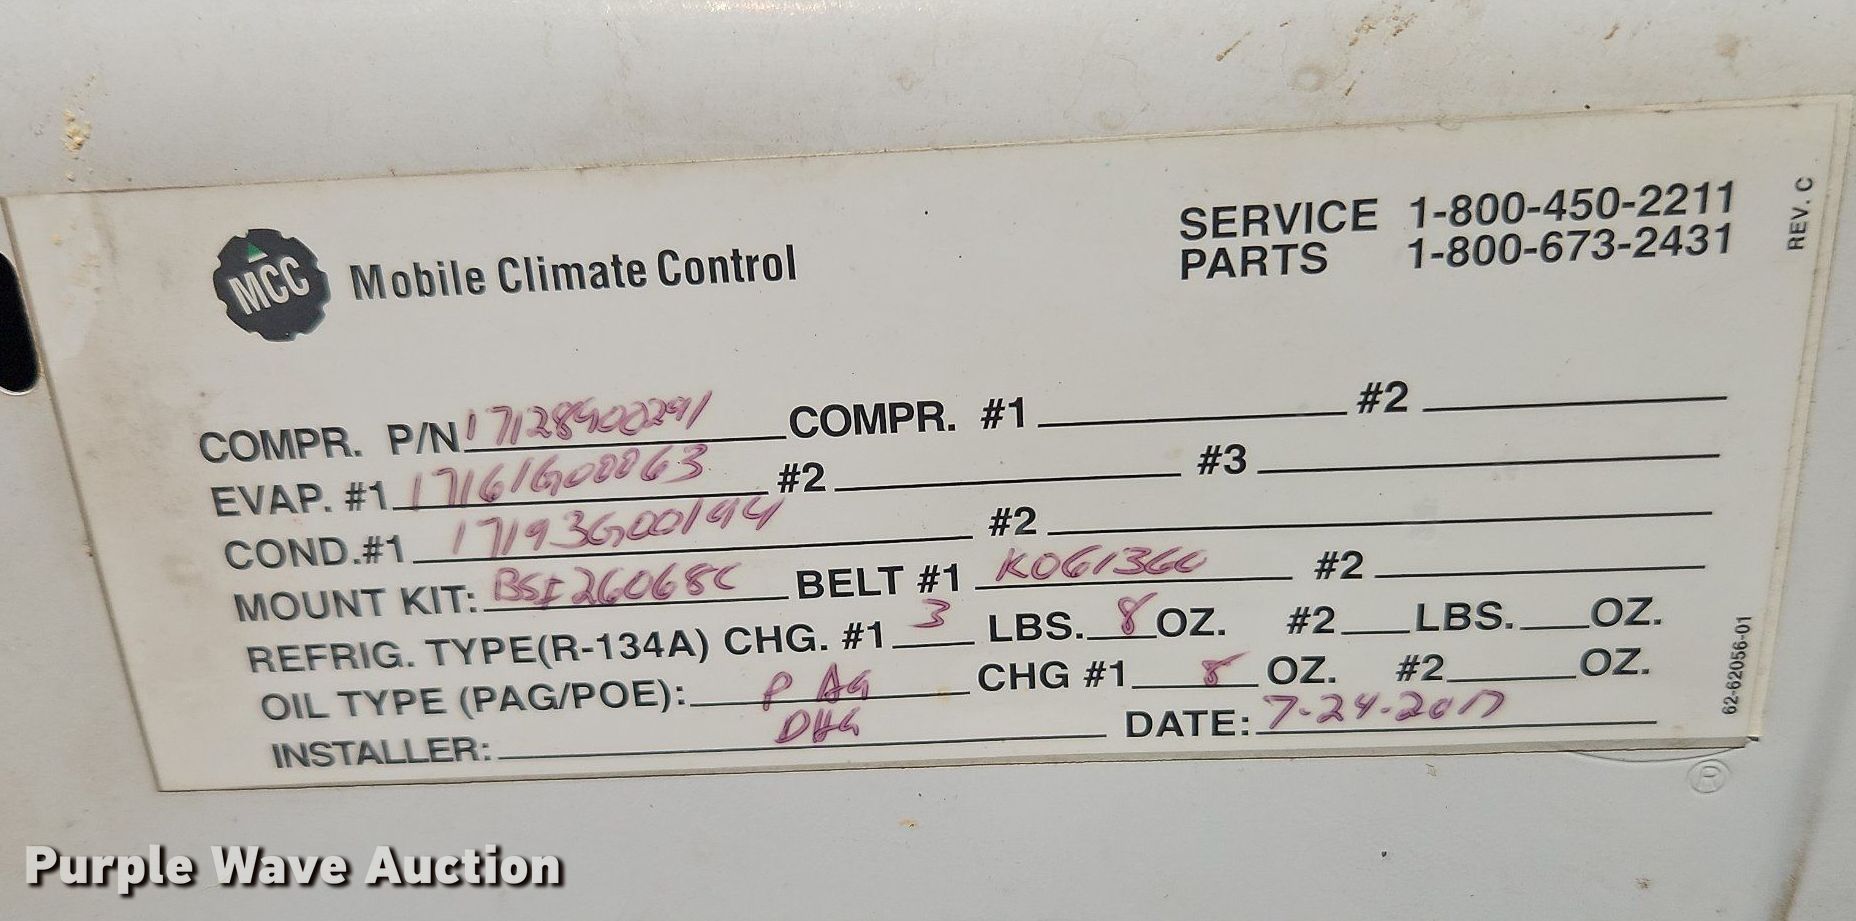 SERVICE 1-800-450-2211
PARTS 1-800-673-2431
REV. C
MCC Mobile Climate Control
COMPR. P/N COMPR. #1 #2
EVAP. #1 #2 #3
COND.#1 17193G00194 #2
MOUNT KIT: BELT #1 #2
REFRIG. TYPE(R-134A) CHG. #1 3 LBS. 8 OZ. #2 LBS. OZ.
OIL TYPE (PAG/POE): PAG CHG #1 8 OZ. #2 OZ.
INSTALLER: DATE: 7-24-2017
62-62056-01
®
Purple Wave Auction